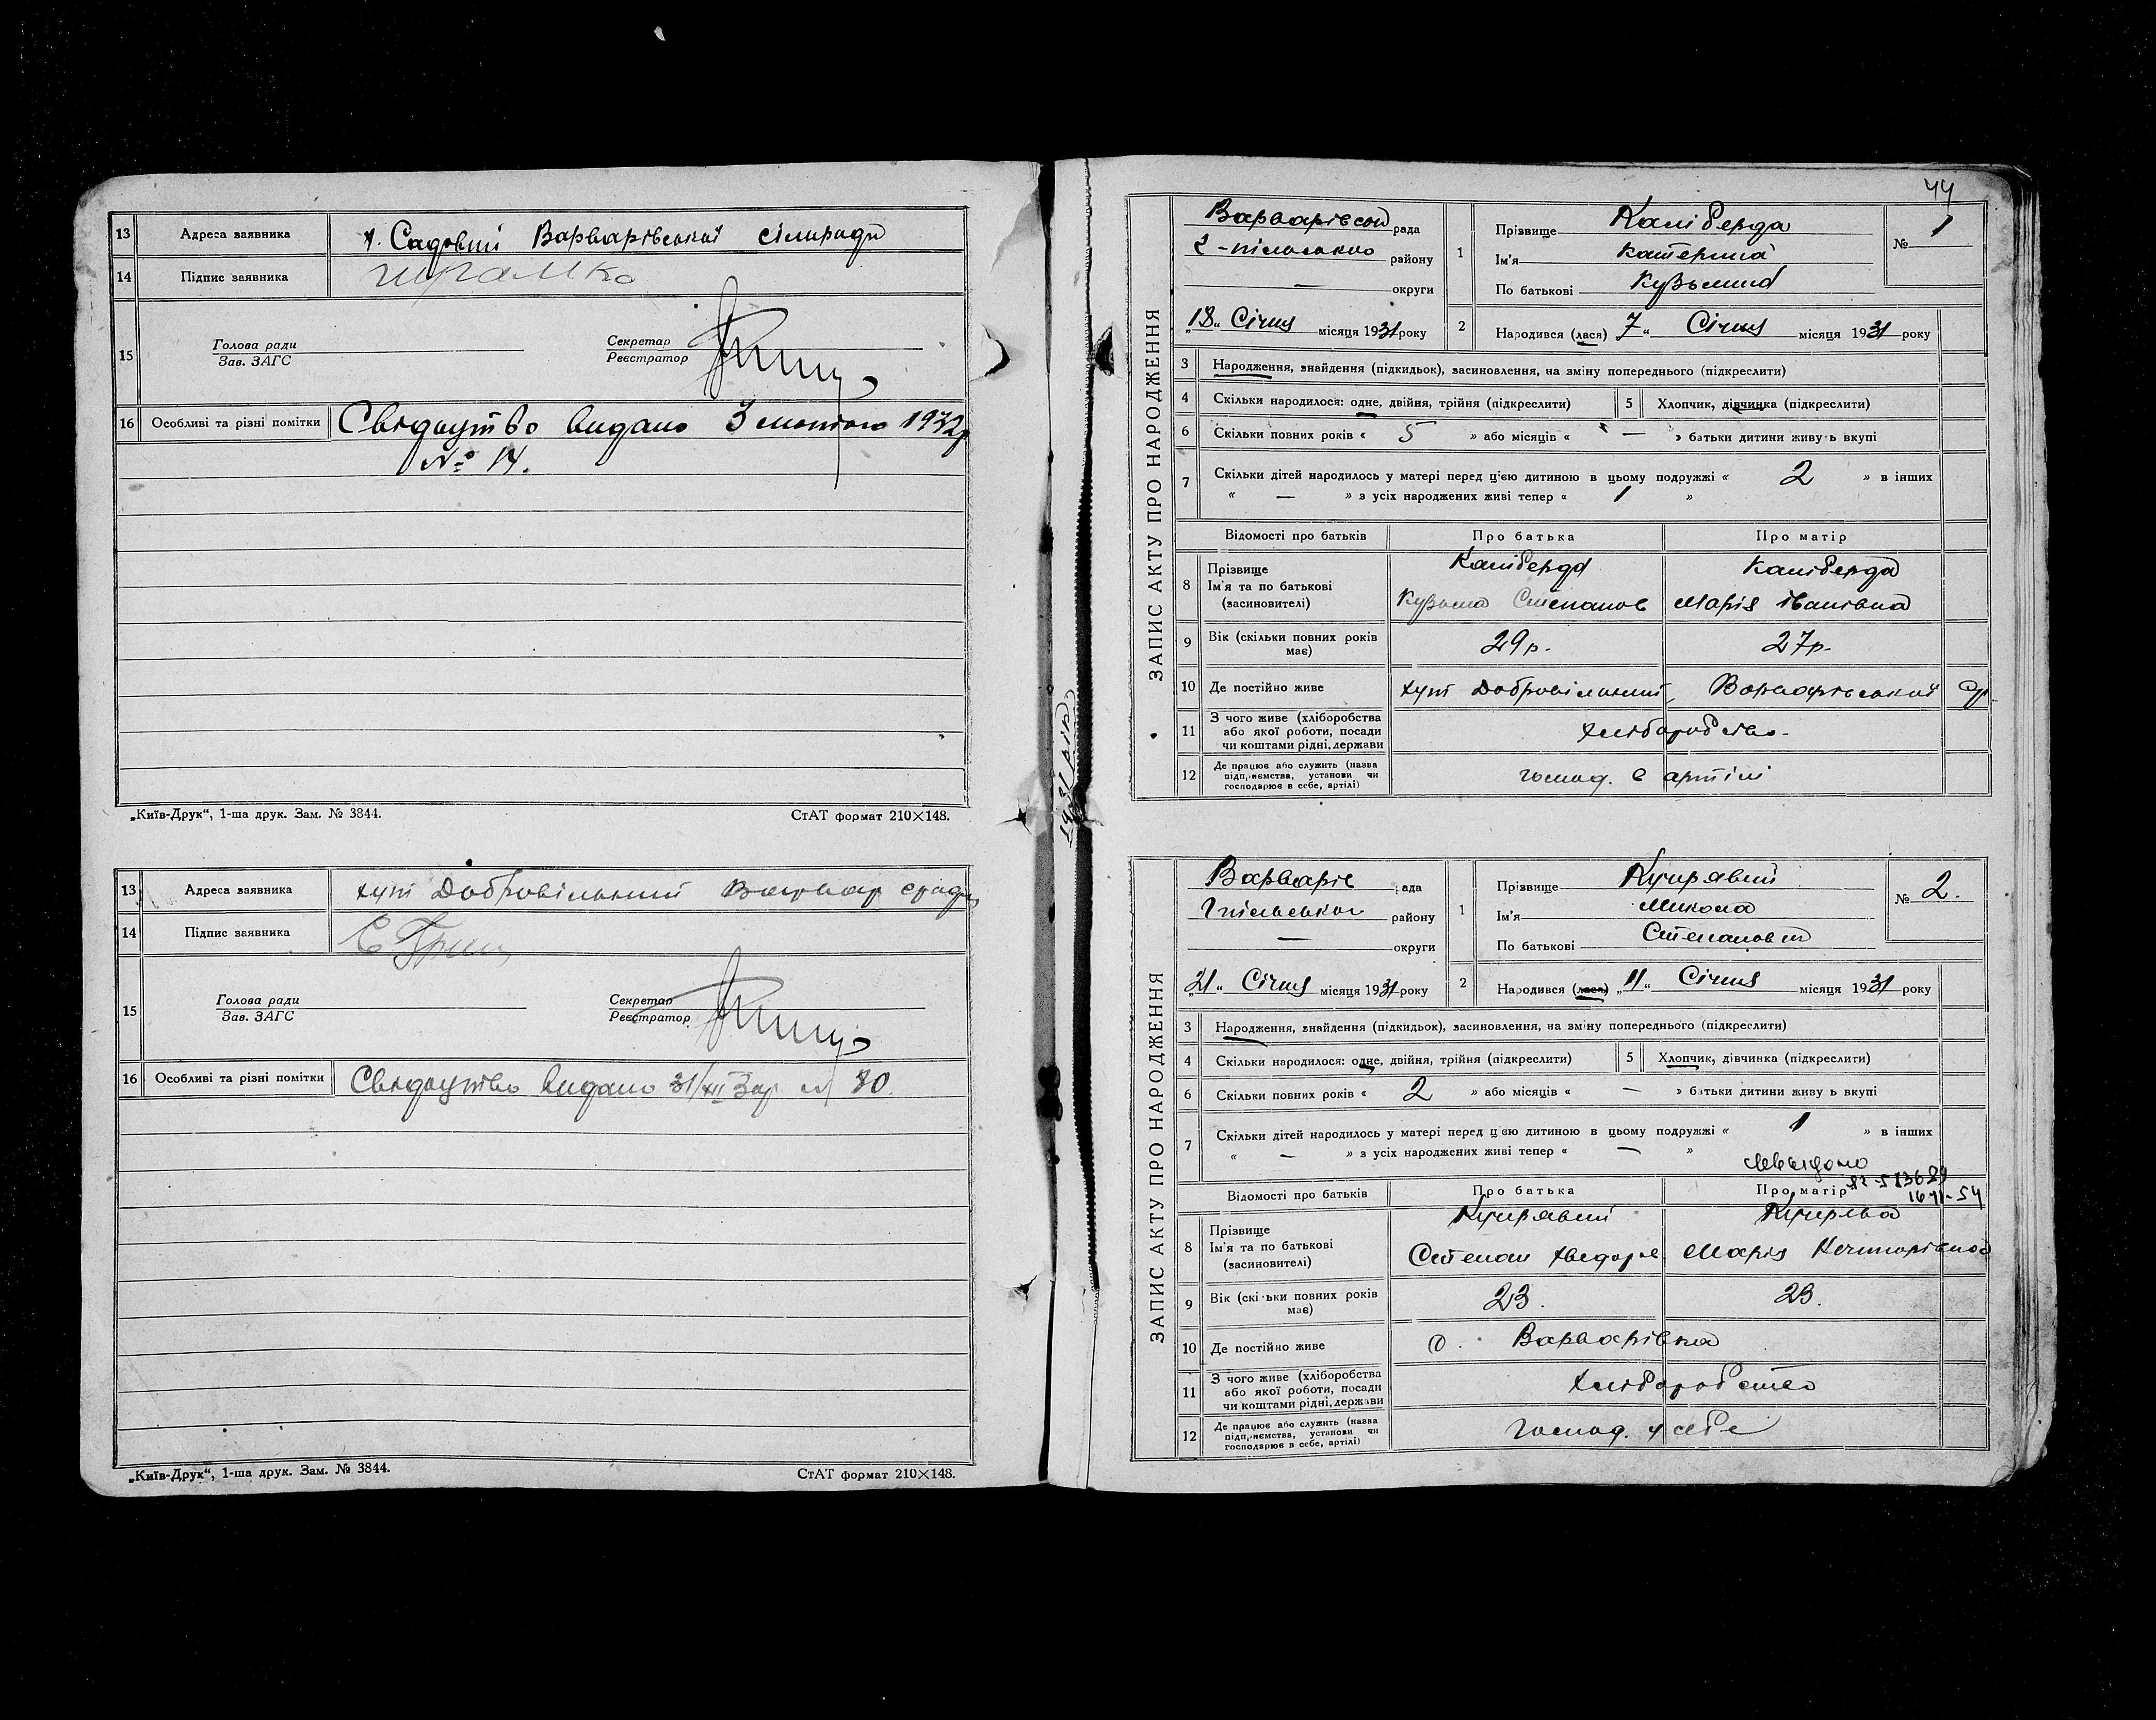 13 Адреса заявника х. Садовий Варварівської сільради
14 Підпис заявника
15 Голова ради
Зав. ЗАГС
Секретар
Реєстратор
16 Особливі та різні помітки Свідоцтво видано 3 лютого 1932р
№ 14.
„Київ-Друк“, 1-ша друк. Зам. № 3844. СтАТ формат 210×148.
13 Адреса заявника хут Добровільний Варвар сради
14 Підпис заявника
15 Голова ради
Зав. ЗАГС
Секретар
Реєстратор
16 Особливі та різні помітки Свідоцтво видано 31/XII 30
„Київ-Друк“, 1-ша друк. Зам. № 3844. СтАТ формат 210×148.
1931 рік
44
ЗАПИС АКТУ ПРО НАРОДЖЕННЯ
Варварівської рада
району
— округи
„18“ Січня місяця 1931 року
1 Прізвище Каліберда
Ім'я Катерина
По батькові Кузьмина
№ 1
2 Народився (лася) 7 „ Січня місяця 1931 року
3 Народження, знайдення (підкидьок), засиновлення, на зміну попереднього (підкреслити)
4 Скільки народилося: одне, двійня, трійня (підкреслити) 5 Хлопчик, дівчинка (підкреслити)
6 Скільки повних років « 5 » або місяців « — » батьки дитини живуть вкупі
7 Скільки дітей народилось у матері перед цією дитиною в цьому подружжі « 2 » в інших
« — » з усіх народжених живі тепер « 1 »
Відомості про батьків Про батька Про матір
8 Прізвище Каліберда Каліберда
Ім'я та по батькові
(засиновителі) Кузьма Степанов Марія Іванівна
9 Вік (скільки повних років має) 29р. 27р.
10 Де постійно живе хут Добровільний, Варварівської ср.
11 З чого живе (хліборобства
або якої роботи, посади
чи коштами рідні, держави Хліборобство.
12 Де працює або служить (назва
підприємства, установи чи
господарює в себе, артілі) господ. в артілі
ЗАПИС АКТУ ПРО НАРОДЖЕННЯ
Варварів рада
Гпільського району
— округи
„21“ Січня місяця 1931 року
1 Прізвище Кучерявий
Ім'я Микола
По батькові Степанович
№ 2.
2 Народився (лася) „11“ Січня місяця 1931 року
3 Народження, знайдення (підкидьок), засиновлення, на зміну попереднього (підкреслити)
4 Скільки народилося: одне, двійня, трійня (підкреслити) 5 Хлопчик, дівчинка (підкреслити)
6 Скільки повних років « 2 » або місяців « — » батьки дитини живуть вкупі
7 Скільки дітей народилось у матері перед цією дитиною в цьому подружжі « 1 » в інших
« — » з усіх народжених живі тепер « — »
Відомості про батьків Про батька Про матір
8 Прізвище Кучерявий Кучерява
Ім'я та по батькові
(засиновителі) Степан Хведоров Марія
9 Вік (скільки повних років має) 23. 23.
10 Де постійно живе с. Варварівка
11 З чого живе (хліборобства
або якої роботи, посади
чи коштами рідні, держави Хліборобство
12 Де працює або служить (назва
підприємства, установи чи
господарює в себе, артілі) господ. у себе